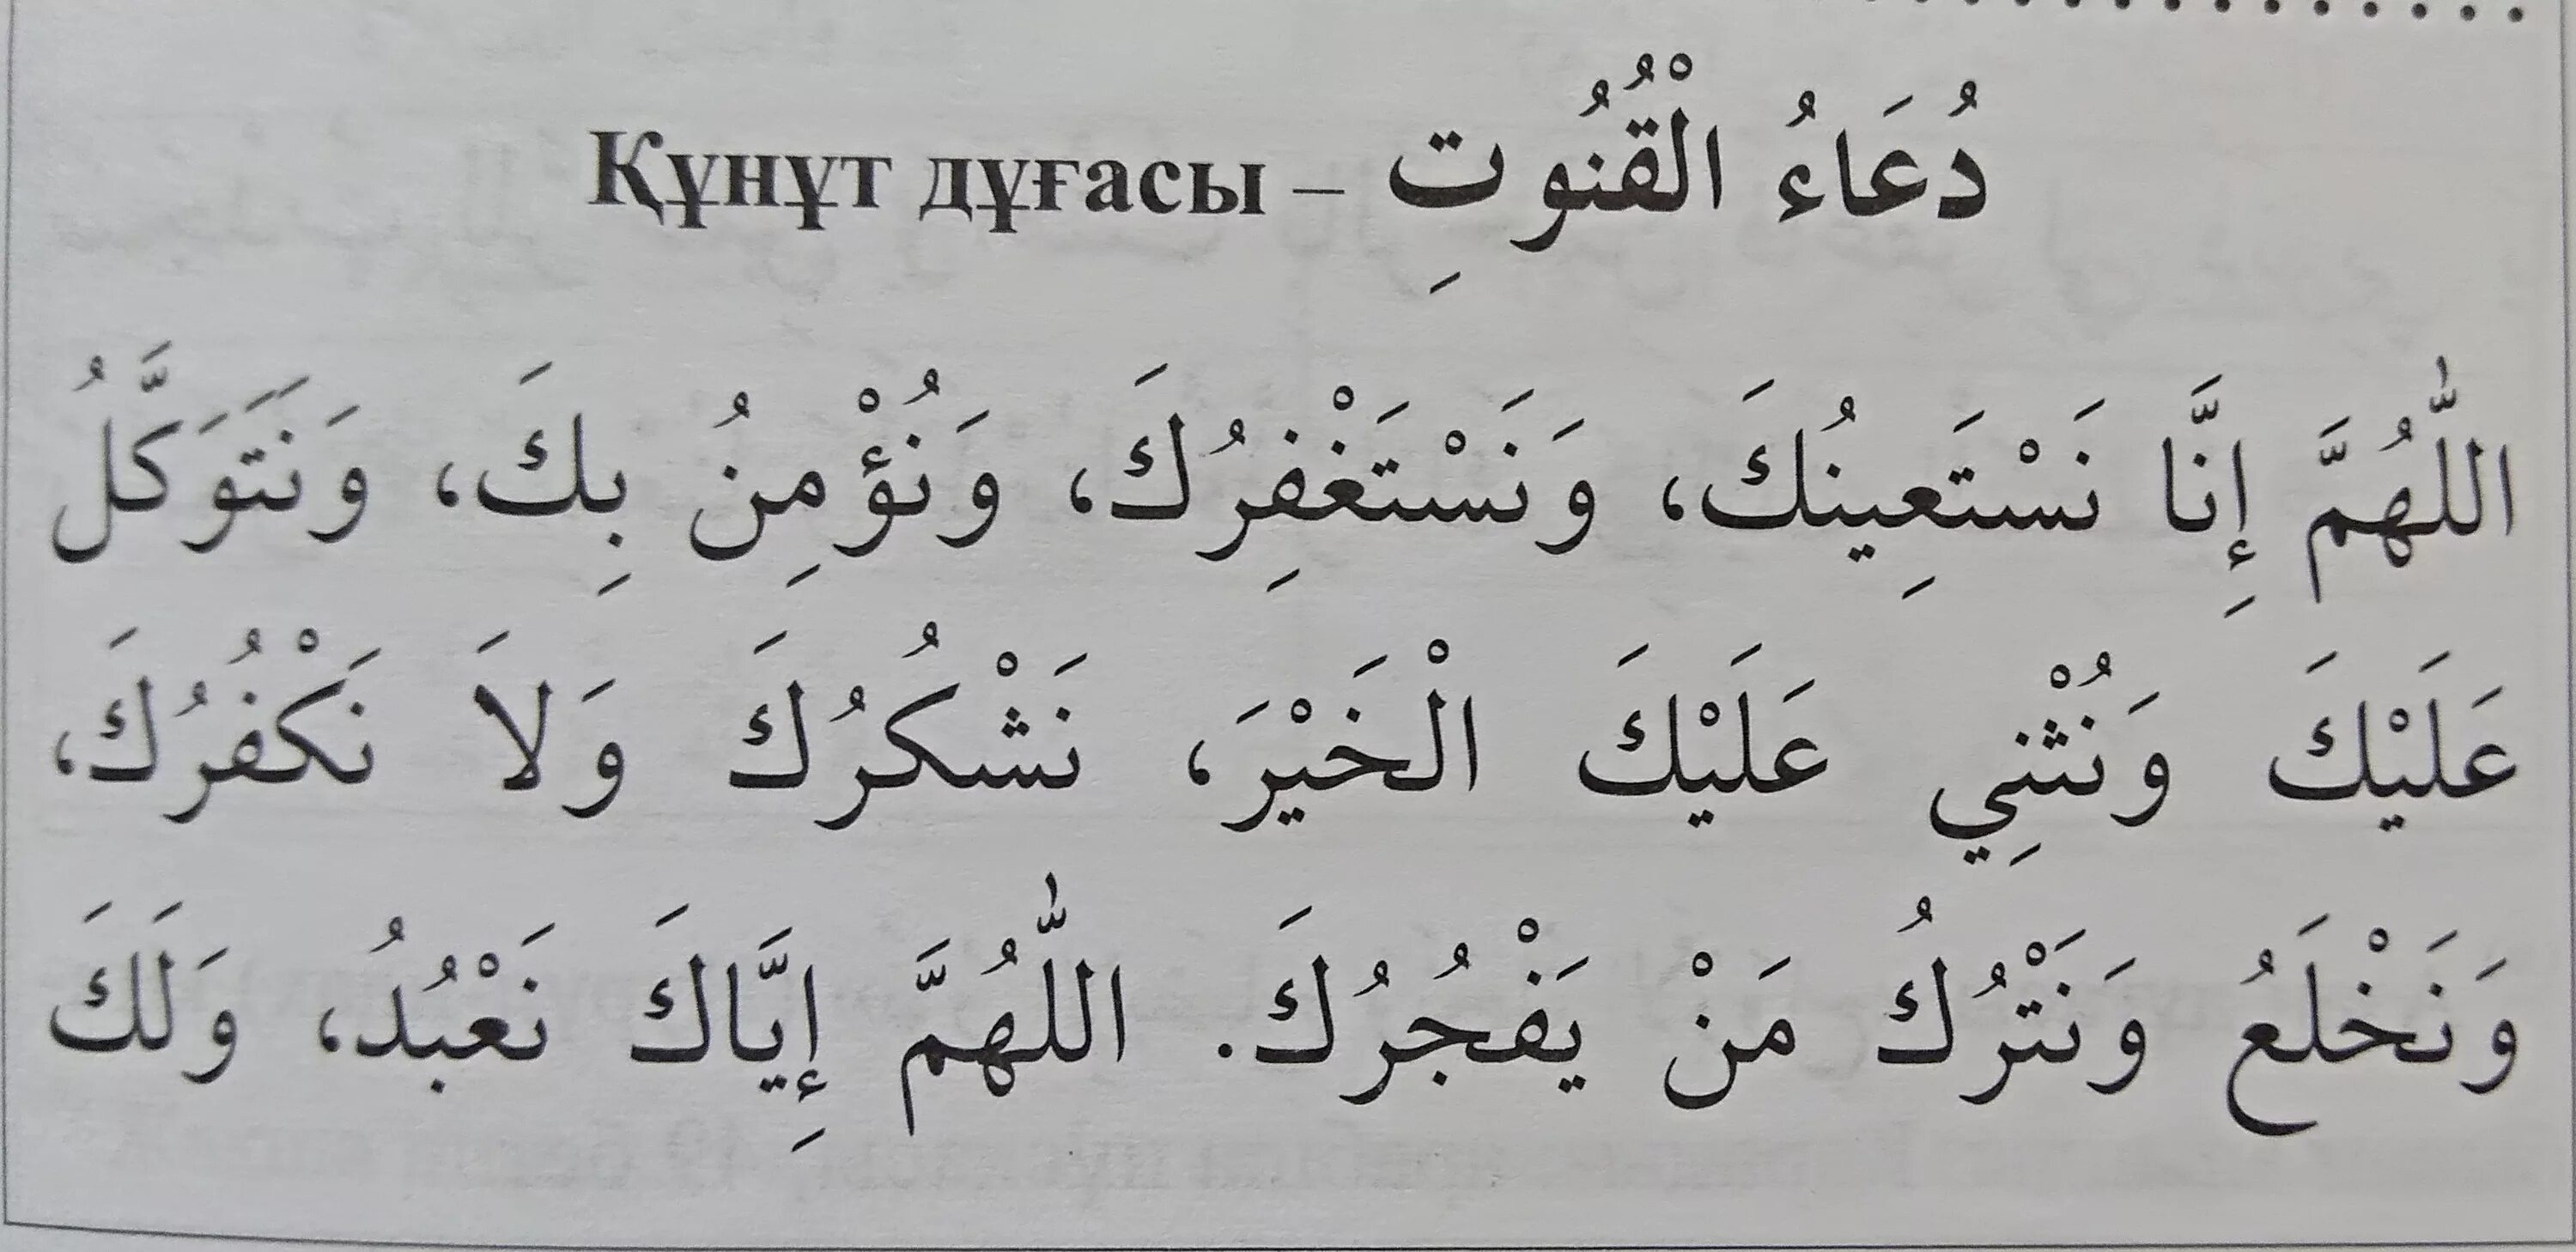 دُعَاءُ الْقُنُوتِ – Құнұт дұғасы
اللّٰهُمَّ إِنَّا نَسْتَعِينُكَ، وَنَسْتَغْفِرُكَ، وَنُؤْمِنُ بِكَ، وَنَتَوَكَّلُ
عَلَيْكَ وَنُثْنِي عَلَيْكَ الْخَيْرَ، نَشْكُرُكَ وَلاَ نَكْفُرُكَ،
وَنَخْلَعُ وَنَتْرُكُ مَنْ يَفْجُرُكَ. اللّٰهُمَّ إِيَّاكَ نَعْبُدُ، وَلَكَ